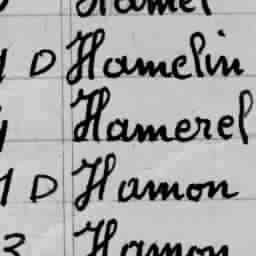 Hamel
D Hamelin
Hamerel
1 D Hamon
3 Hamon